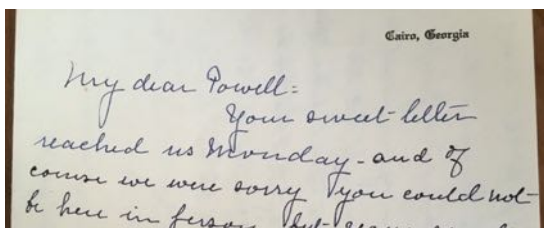 Cairo, Georgia
My dear Powell=
Your sweet letter
reached us Monday - and of
course we were sorry you could not
be here in person, but